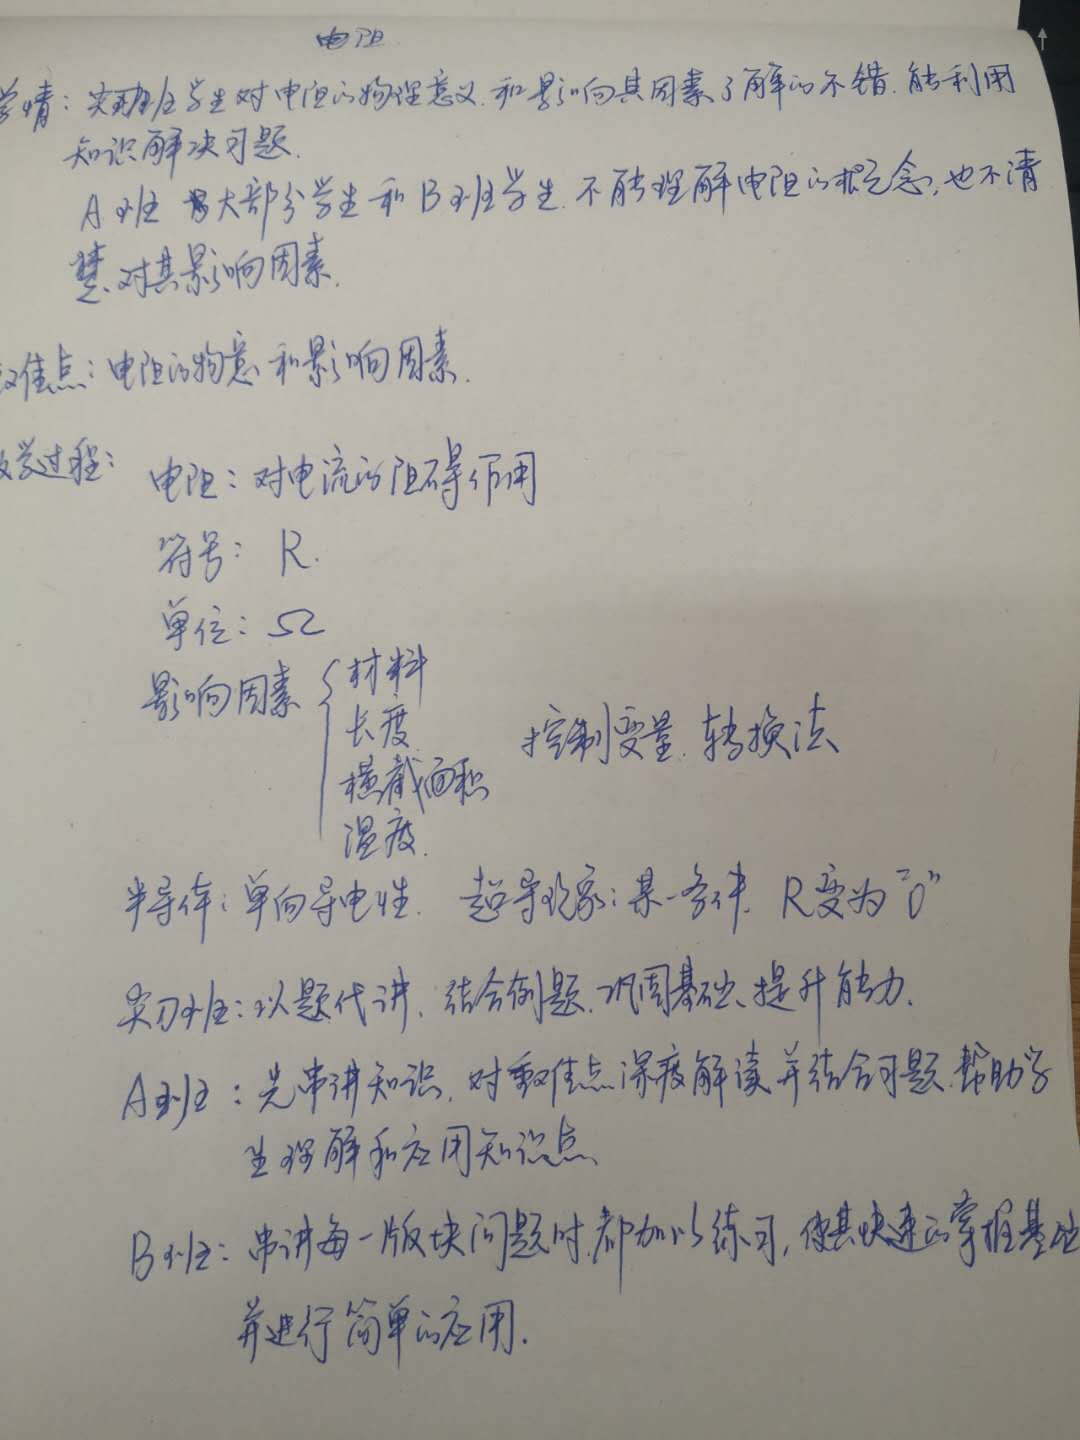 电阻
学情：实验班学生对电阻的物理意义和影响其因素了解的不错，能利用
知识解决习题.
A班 大部分学生和B班学生，不能理解电阻的概念，也不清
楚对其影响因素.
难点：电阻的物意和影响因素.
教学过程：
电阻：对电流的阻碍作用
符号： R.
单位：Ω
影响因素 { 材料
长度
横截面积
温度.
控制变量、转换法
半导体：单向导电性. 超导现象：某一条件，R变为“0”
班：以题代讲，结合例题，巩固基础、提升能力.
A班：先串讲知识，对重难点深度解读并结合习题，帮助学
生理解和应用知识点
B班：串讲每一版块问题时，都加以练习，使其快速的掌握基础
并进行简单的应用.